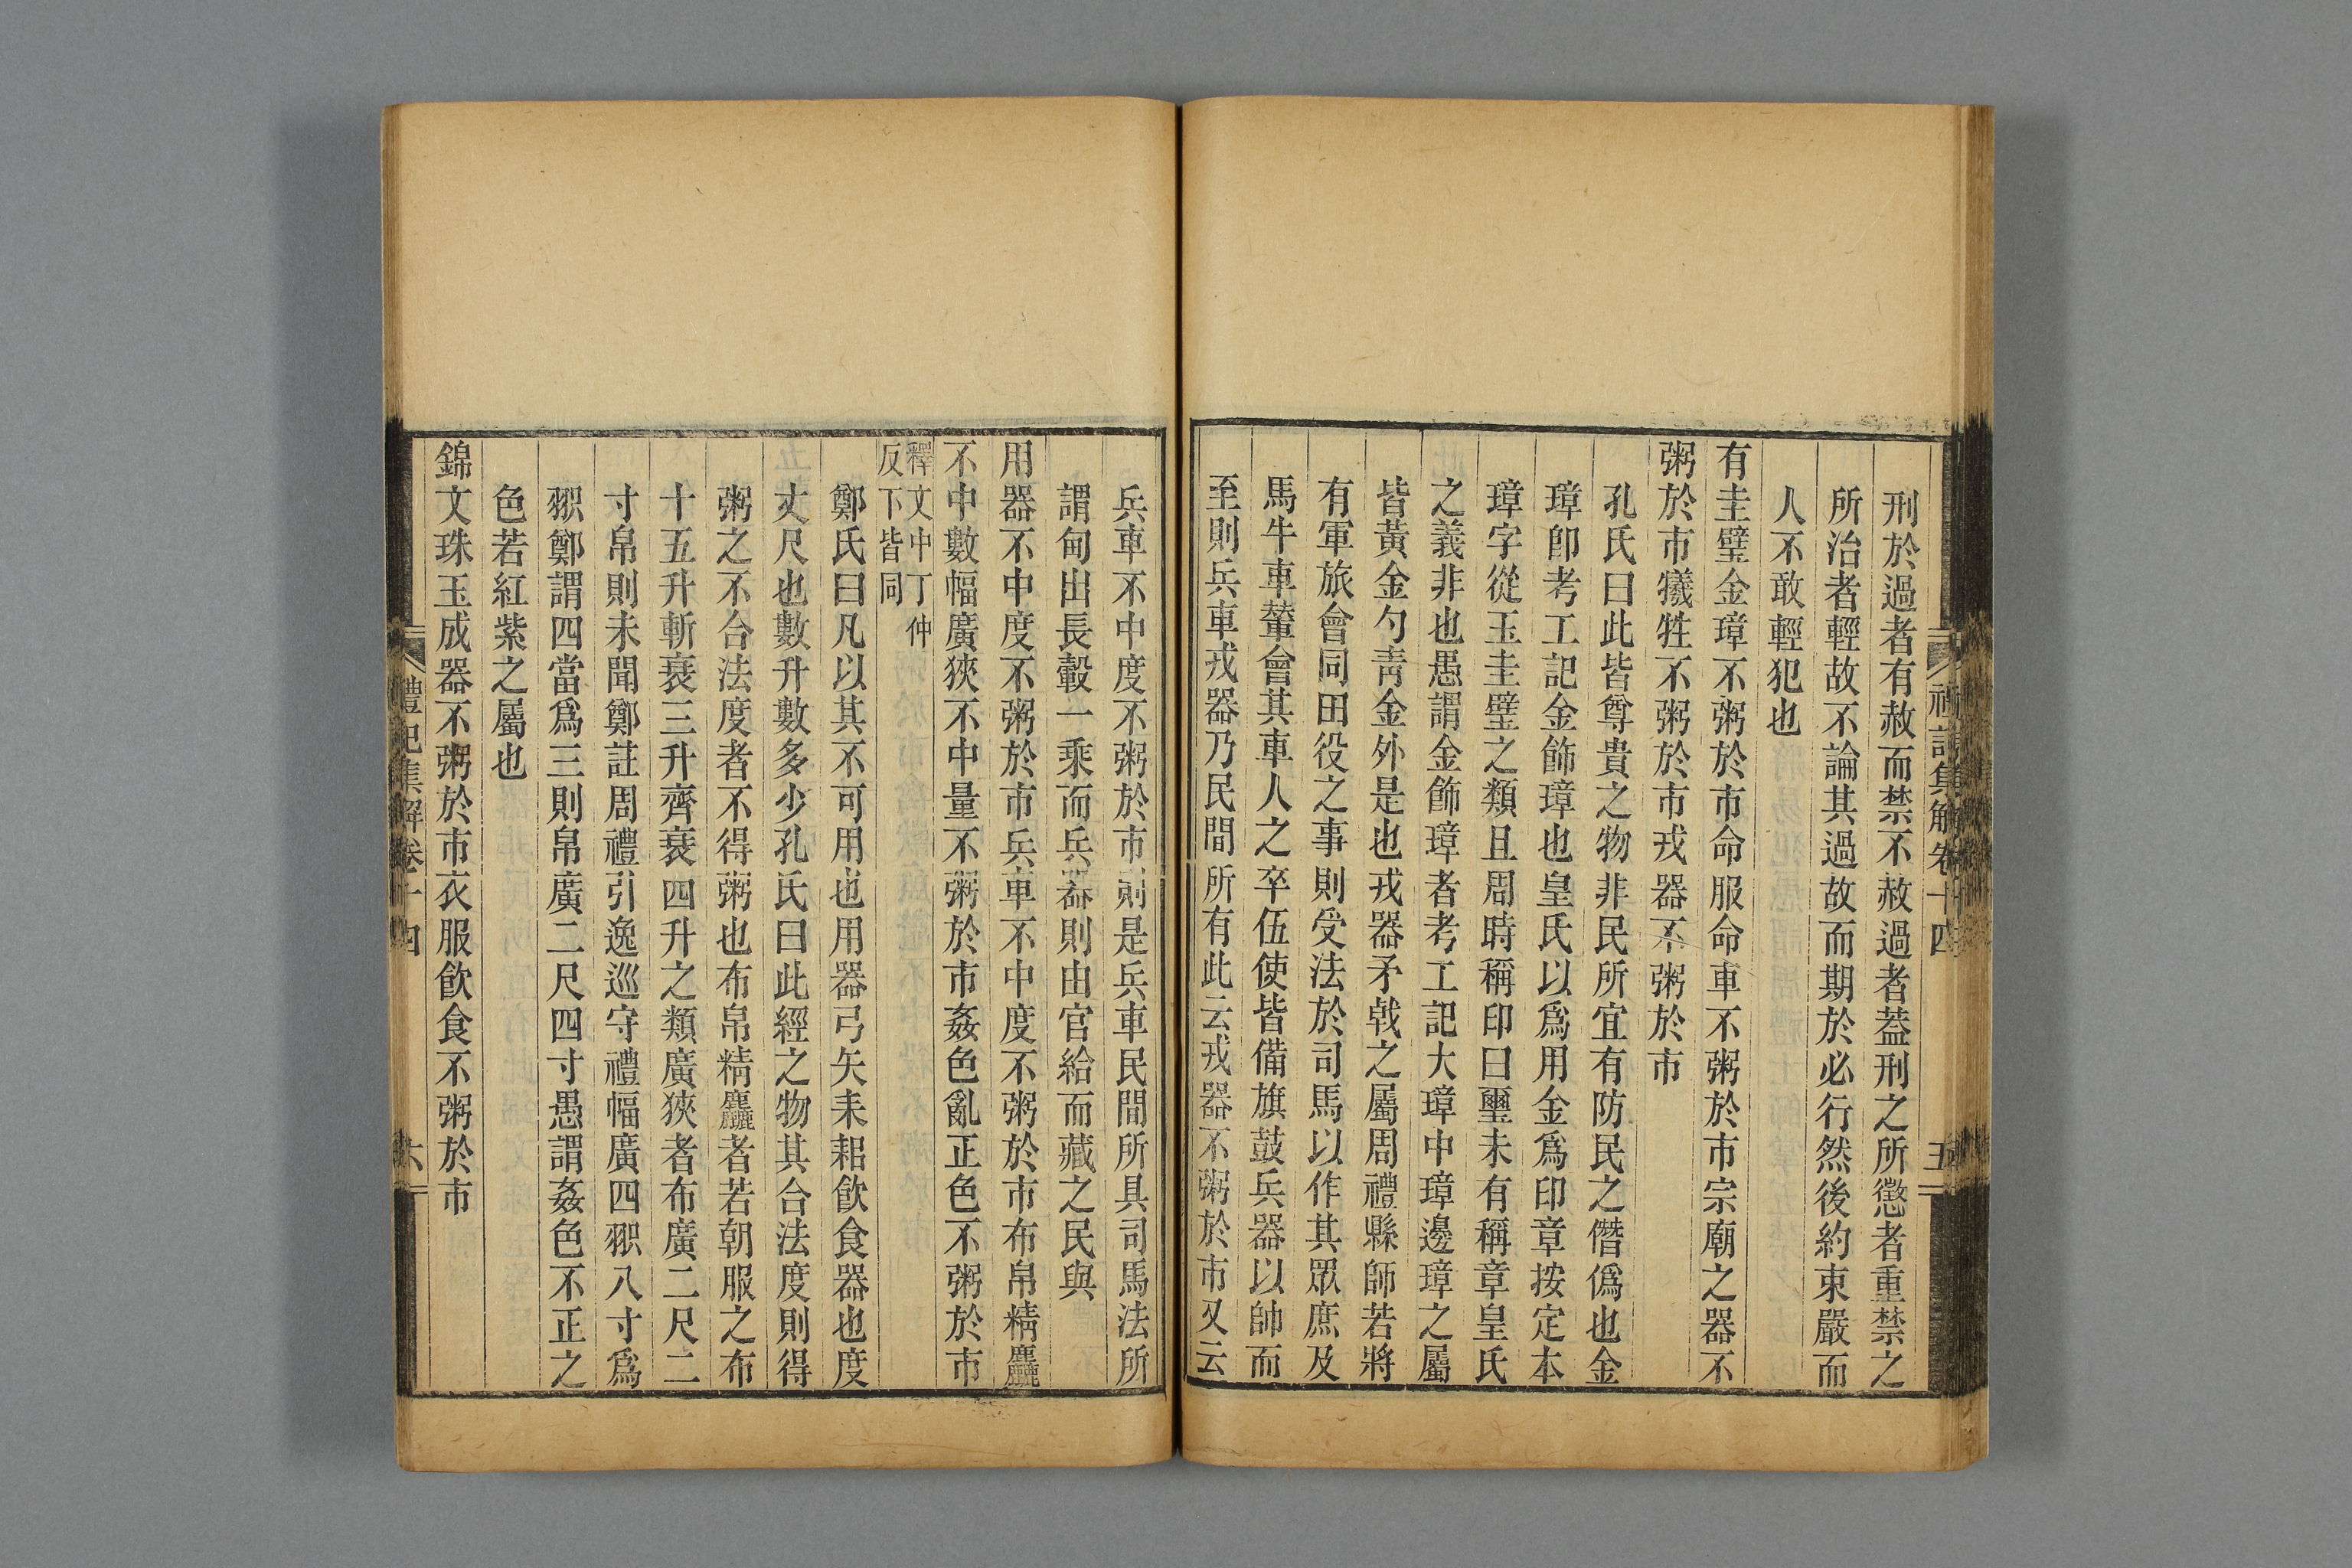 禮記集解卷十四
五
刑於過者有赦而禁不赦過者葢刑之所懲者重禁之
所治者輕故不論其過故而期於必行然後約束嚴而
人不敢輕犯也
有圭璧金璋不粥於市命服命車不粥於市宗廟之器不
粥於市犧牲不粥於市戎器不粥於市
孔氏曰此皆尊貴之物非民所宜有防民之僭僞也金
璋卽考工記金飾璋也皇氏以爲用金爲印章按定本
璋字從玉圭璧之類且周時稱印曰璽未有稱章皇氏
之義非也愚謂金飾璋者考工記大璋中璋邊璋之屬
皆黃金勺靑金外是也戎器矛戟之屬周禮縣師若將
有軍旅會同田役之事則受法於司馬以作其眾庶及
馬牛車輦會其車人之卒伍使皆備旗鼓兵器以帥而
至則兵車戎器乃民間所有此云戎器不粥於市又云
兵車不中度不粥於市則是兵車民間所具司馬法所
謂甸出長轂一乘而兵器則由官給而藏之民與
用器不中度不粥於市兵車不中度不粥於市布帛精麤
不中數幅廣狹不中量不粥於市姦色亂正色不粥於市
釋文中丁仲
反下皆同
鄭氏曰凡以其不可用也用器弓矢耒耜飮食器也度
丈尺也數升數多少孔氏曰此經之物其合法度則得
粥之不合法度者不得粥也布帛精麤者若朝服之布
十五升斬衰三升齊衰四升之類廣狹者布廣二尺二
寸帛則未聞鄭註周禮引逸巡守禮幅廣四咫八寸爲
咫鄭謂四當爲三則帛廣二尺四寸愚謂姦色不正之
色若紅紫之屬也
錦文珠玉成器不粥於市衣服飮食不粥於市
禮記集解卷十四
六